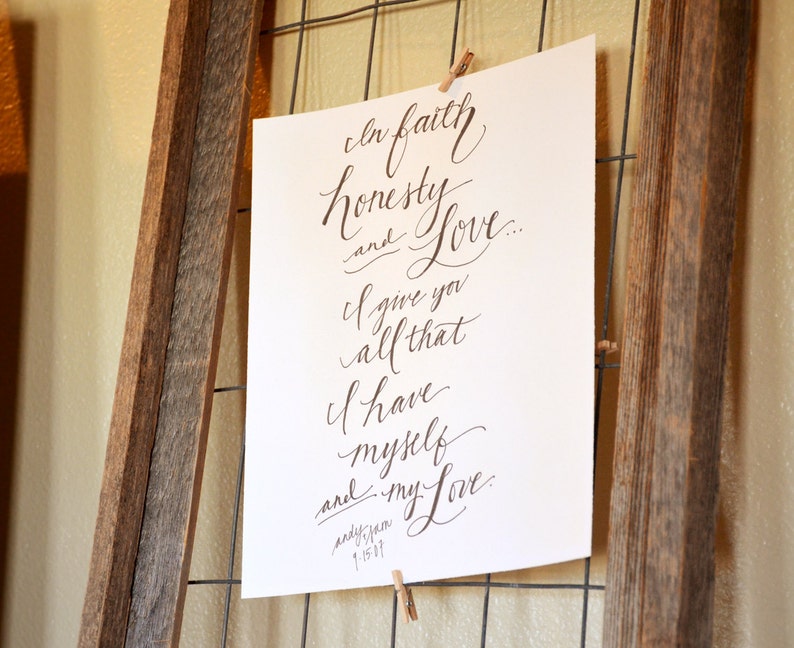 In faith
honesty
and Love...
I give you
all that
I have
myself
and my Love.
andy & sam
9.15.07